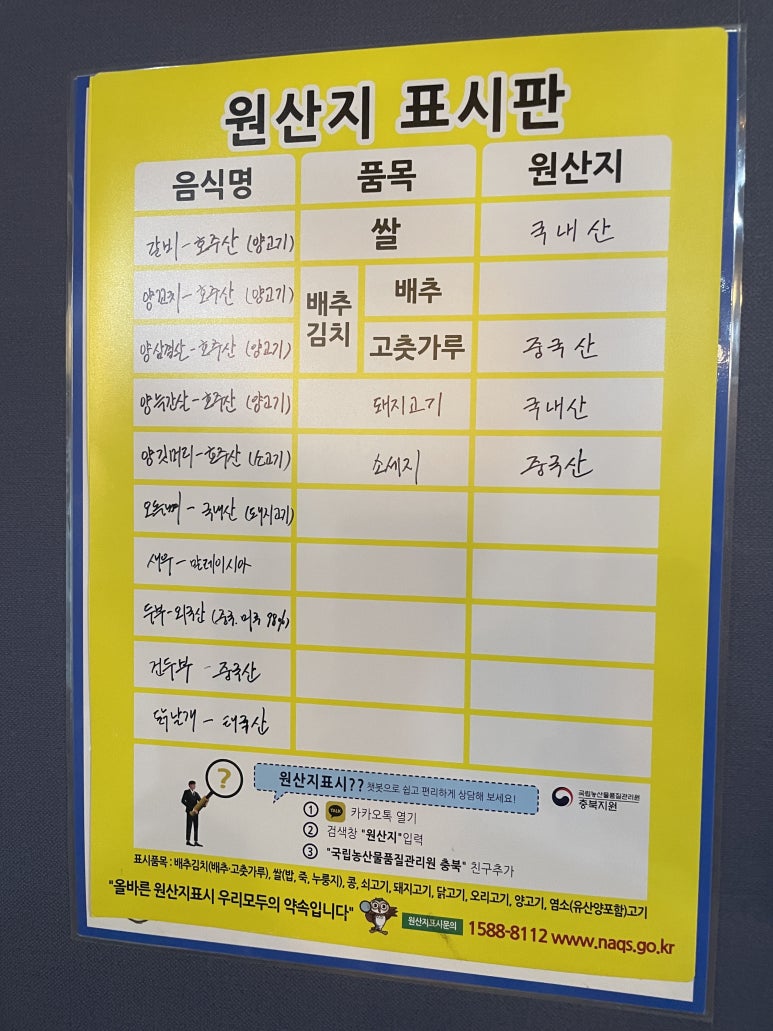 원산지 표시판
음식명 품목 원산지
갈비 - 호주산 (양고기) 쌀 국내산
양꼬치 - 호주산 (양고기) 배추김치 배추
양삼겹살 - 호주산 (양고기) 고춧가루 중국산
양늑간살 - 호주산 (양고기) 돼지고기 국내산
양깃머리 - 호주산 (소고기) 소세지 중국산
오돌뼈 - 국내산 (돼지고기)
새우 - 말레이시아
두부 - 외국산 (중국.미국 98%)
건두부 - 중국산
닭날개 - 태국산
?
원산지표시?? 챗봇으로 쉽고 편리하게 상담해 보세요!
① TALK 카카오톡 열기
② 검색창 "원산지"입력
③ "국립농산물품질관리원 충북" 친구추가
국립농산물품질관리원
충북지원
표시품목 : 배추김치(배추·고춧가루), 쌀(밥, 죽, 누룽지), 콩, 쇠고기, 돼지고기, 닭고기, 오리고기, 양고기, 염소(유산양포함)고기
"올바른 원산지표시 우리모두의 약속입니다" 원산지표시문의 1588-8112 www.naqs.go.kr